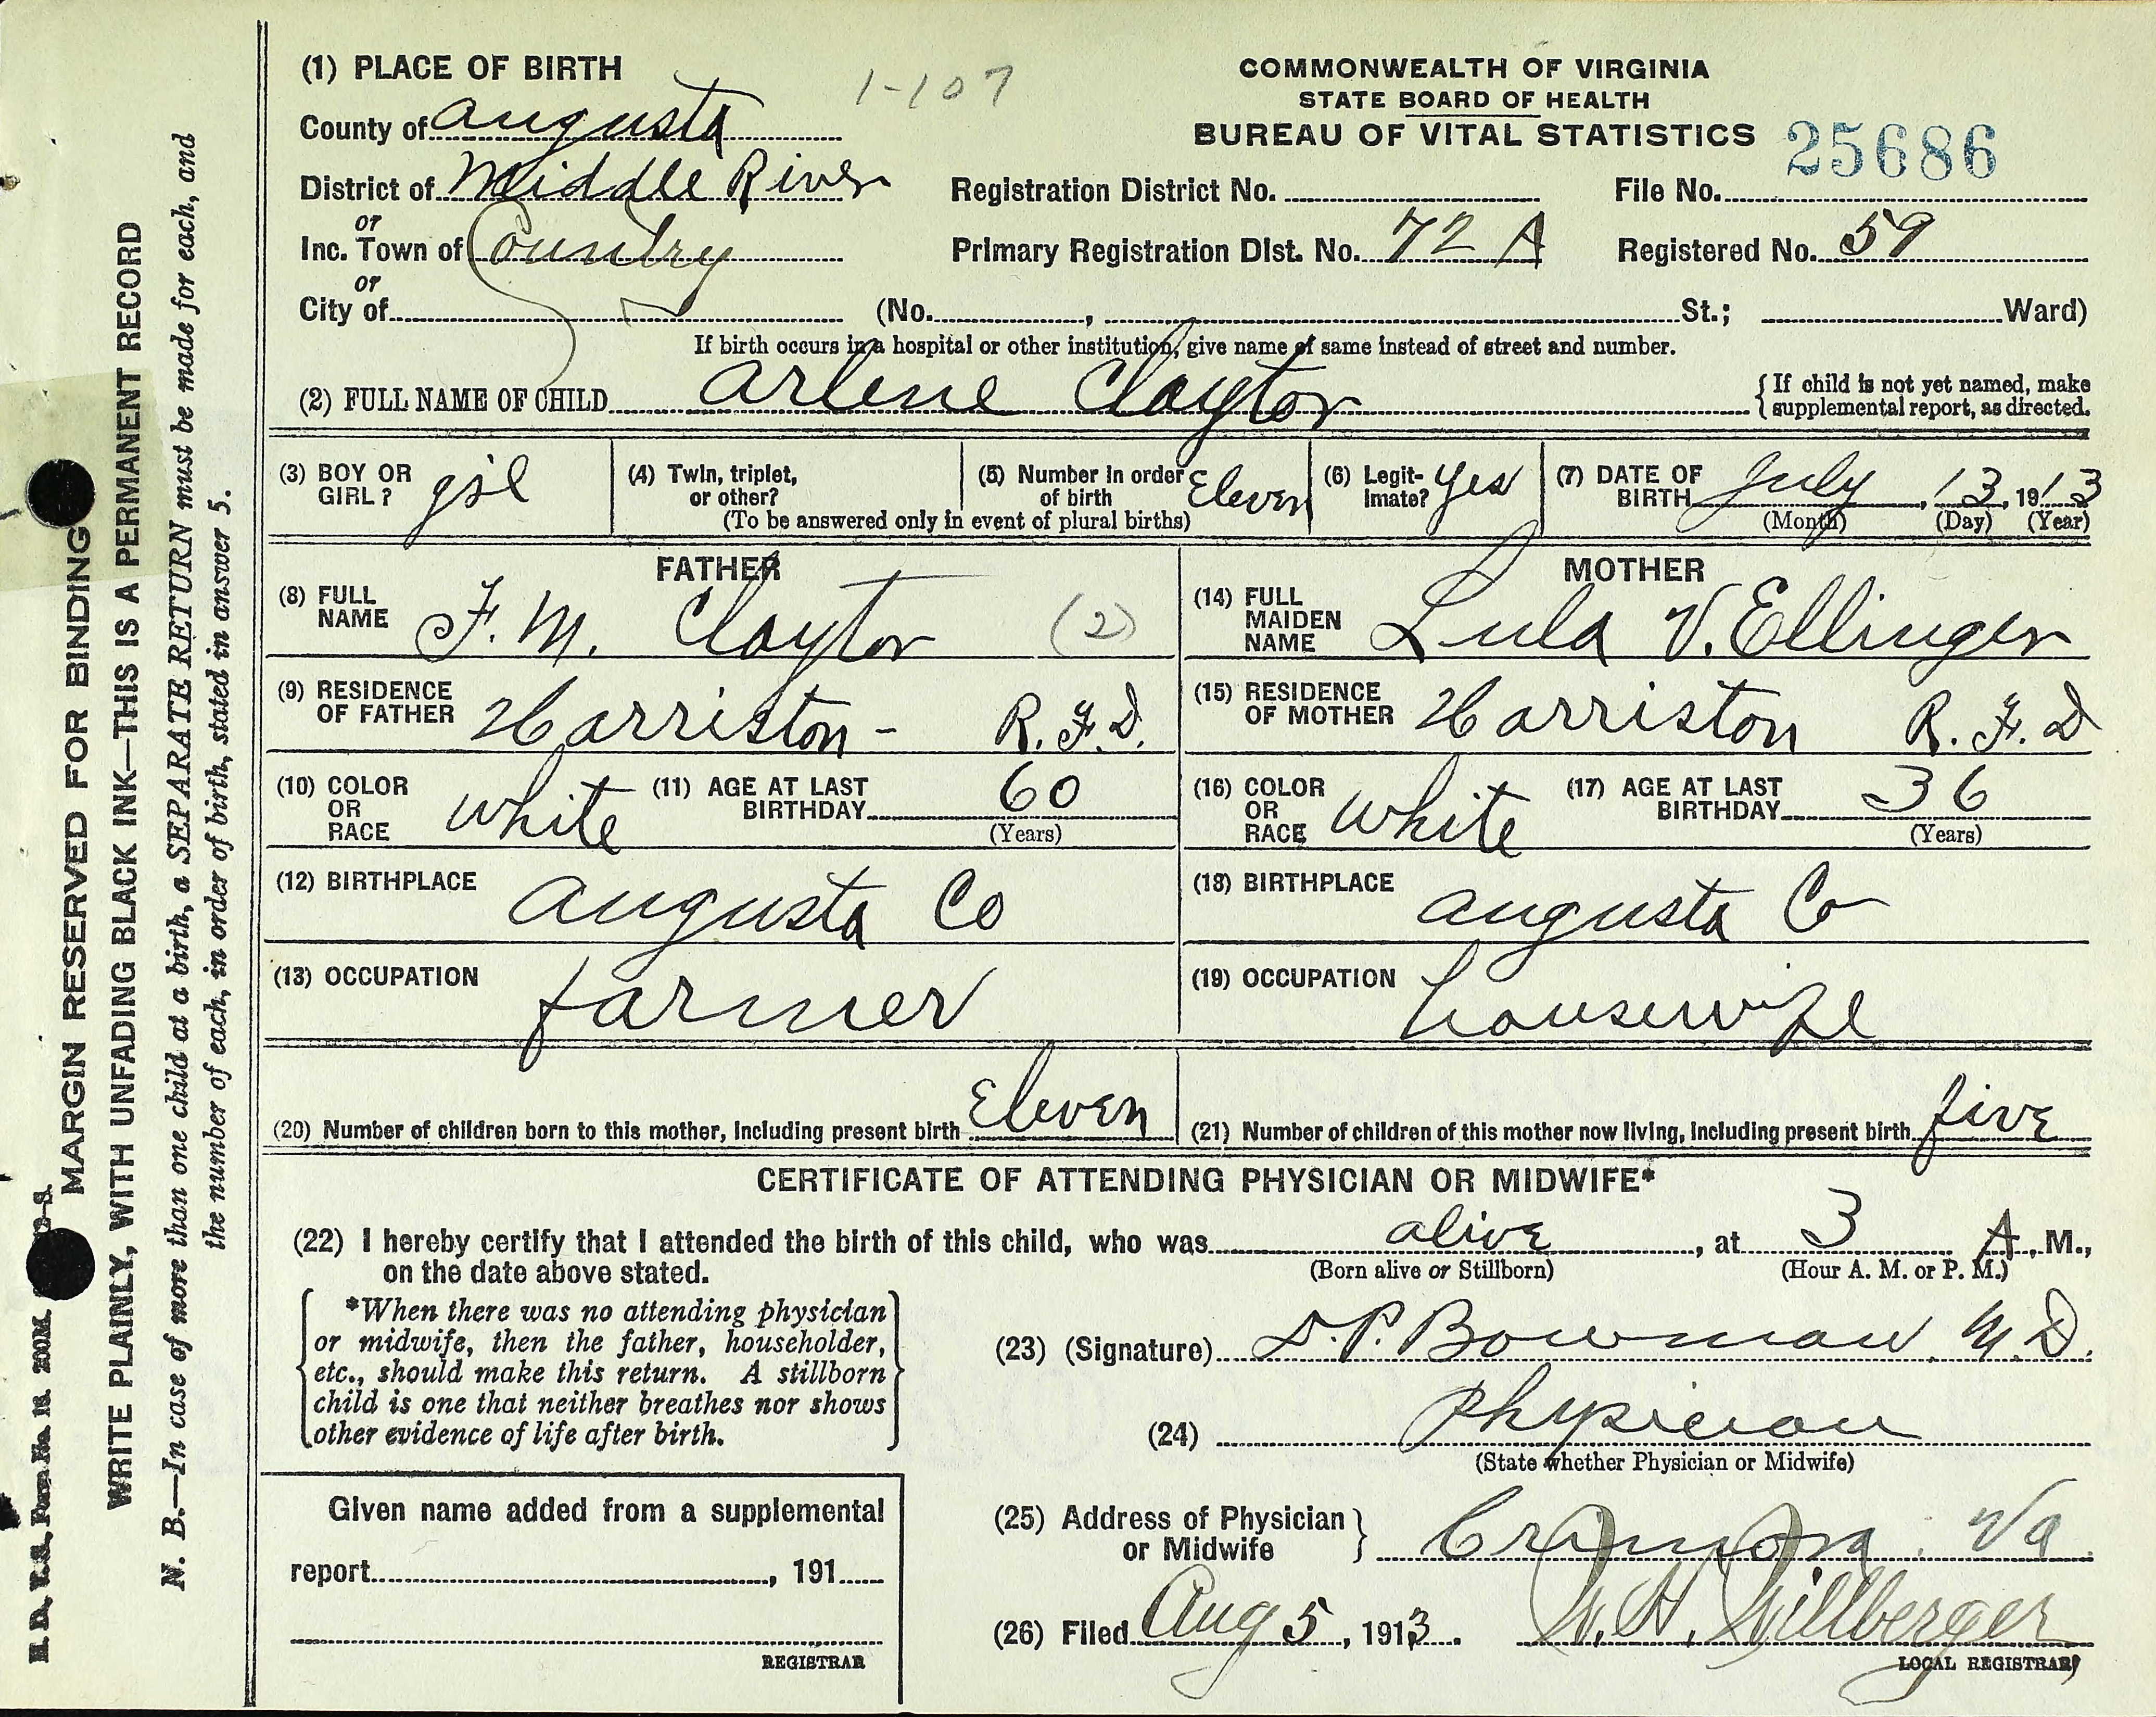 (1) PLACE OF BIRTH
1-107
COMMONWEALTH OF VIRGINIA
STATE BOARD OF HEALTH
BUREAU OF VITAL STATISTICS
25686
County of Augusta
District of Middle River
Registration District No.
File No.
or
Inc. Town of Country
Primary Registration Dist. No. 72 A
Registered No. 59
or
City of
(No. , St.; Ward)
If birth occurs in a hospital or other institution, give name of same instead of street and number.
(2) FULL NAME OF CHILD Arlene Claytor
{If child is not yet named, make
supplemental report, as directed.
(3) BOY OR
GIRL? girl
(4) Twin, triplet,
or other?
(5) Number in order
of birth Eleven
(To be answered only in event of plural births)
(6) Legit-
imate? Yes
(7) DATE OF
BIRTH July, 13, 1913
(Month) (Day) (Year)
FATHER
(8) FULL
NAME F. M. Claytor (2)
(9) RESIDENCE
OF FATHER Harriston - R. F. D.
(10) COLOR
OR
RACE white
(11) AGE AT LAST
BIRTHDAY 60
(Years)
(12) BIRTHPLACE Augusta Co
(13) OCCUPATION farmer
MOTHER
(14) FULL
MAIDEN
NAME Lula V. Ellinger
(15) RESIDENCE
OF MOTHER Harriston R. F. D
(16) COLOR
OR
RACE white
(17) AGE AT LAST
BIRTHDAY 36
(Years)
(18) BIRTHPLACE Augusta Co
(19) OCCUPATION housewife
(20) Number of children born to this mother, including present birth Eleven
(21) Number of children of this mother now living, including present birth five
CERTIFICATE OF ATTENDING PHYSICIAN OR MIDWIFE*
(22) I hereby certify that I attended the birth of this child, who was alive, at 3 A. M.,
(Born alive or Stillborn) (Hour A. M. or P. M.)
on the date above stated.
*When there was no attending physician
or midwife, then the father, householder,
etc., should make this return. A stillborn
child is one that neither breathes nor shows
other evidence of life after birth.
(23) (Signature) D. P. Bowman M. D.
(24) Physician
(State whether Physician or Midwife)
Given name added from a supplemental
report , 191
REGISTRAR
(25) Address of Physician
or Midwife } Crimora Va
(26) Filed Aug 5, 1913. W. H. Willberger
LOCAL REGISTRAR
MARGIN RESERVED FOR BINDING
WRITE PLAINLY, WITH UNFADING BLACK INK—THIS IS A PERMANENT RECORD
N. B.—In case of more than one child at a birth, a SEPARATE RETURN must be made for each, and
the number of each, in order of birth, stated in answer 5.
Form No. 18. 200M.